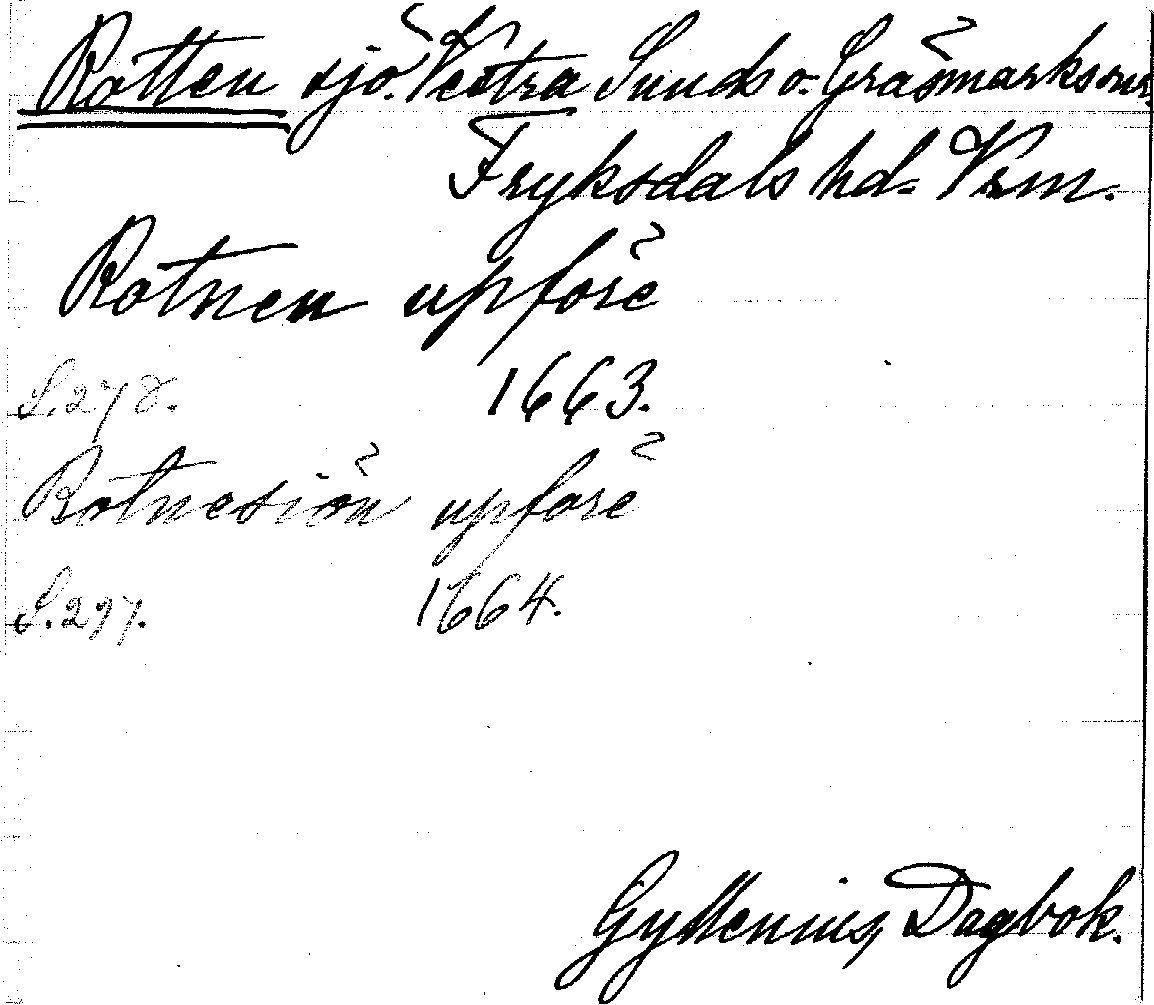 Rotten sjö. Vestra Sunds o. Gräsmarks snr.
Fryksdals hd. Vrm.
Rotnen upföre
S. 278. 1663.
Rotnesiön upföre
S. 297. 1664.
Gyllenius, Dagbok.